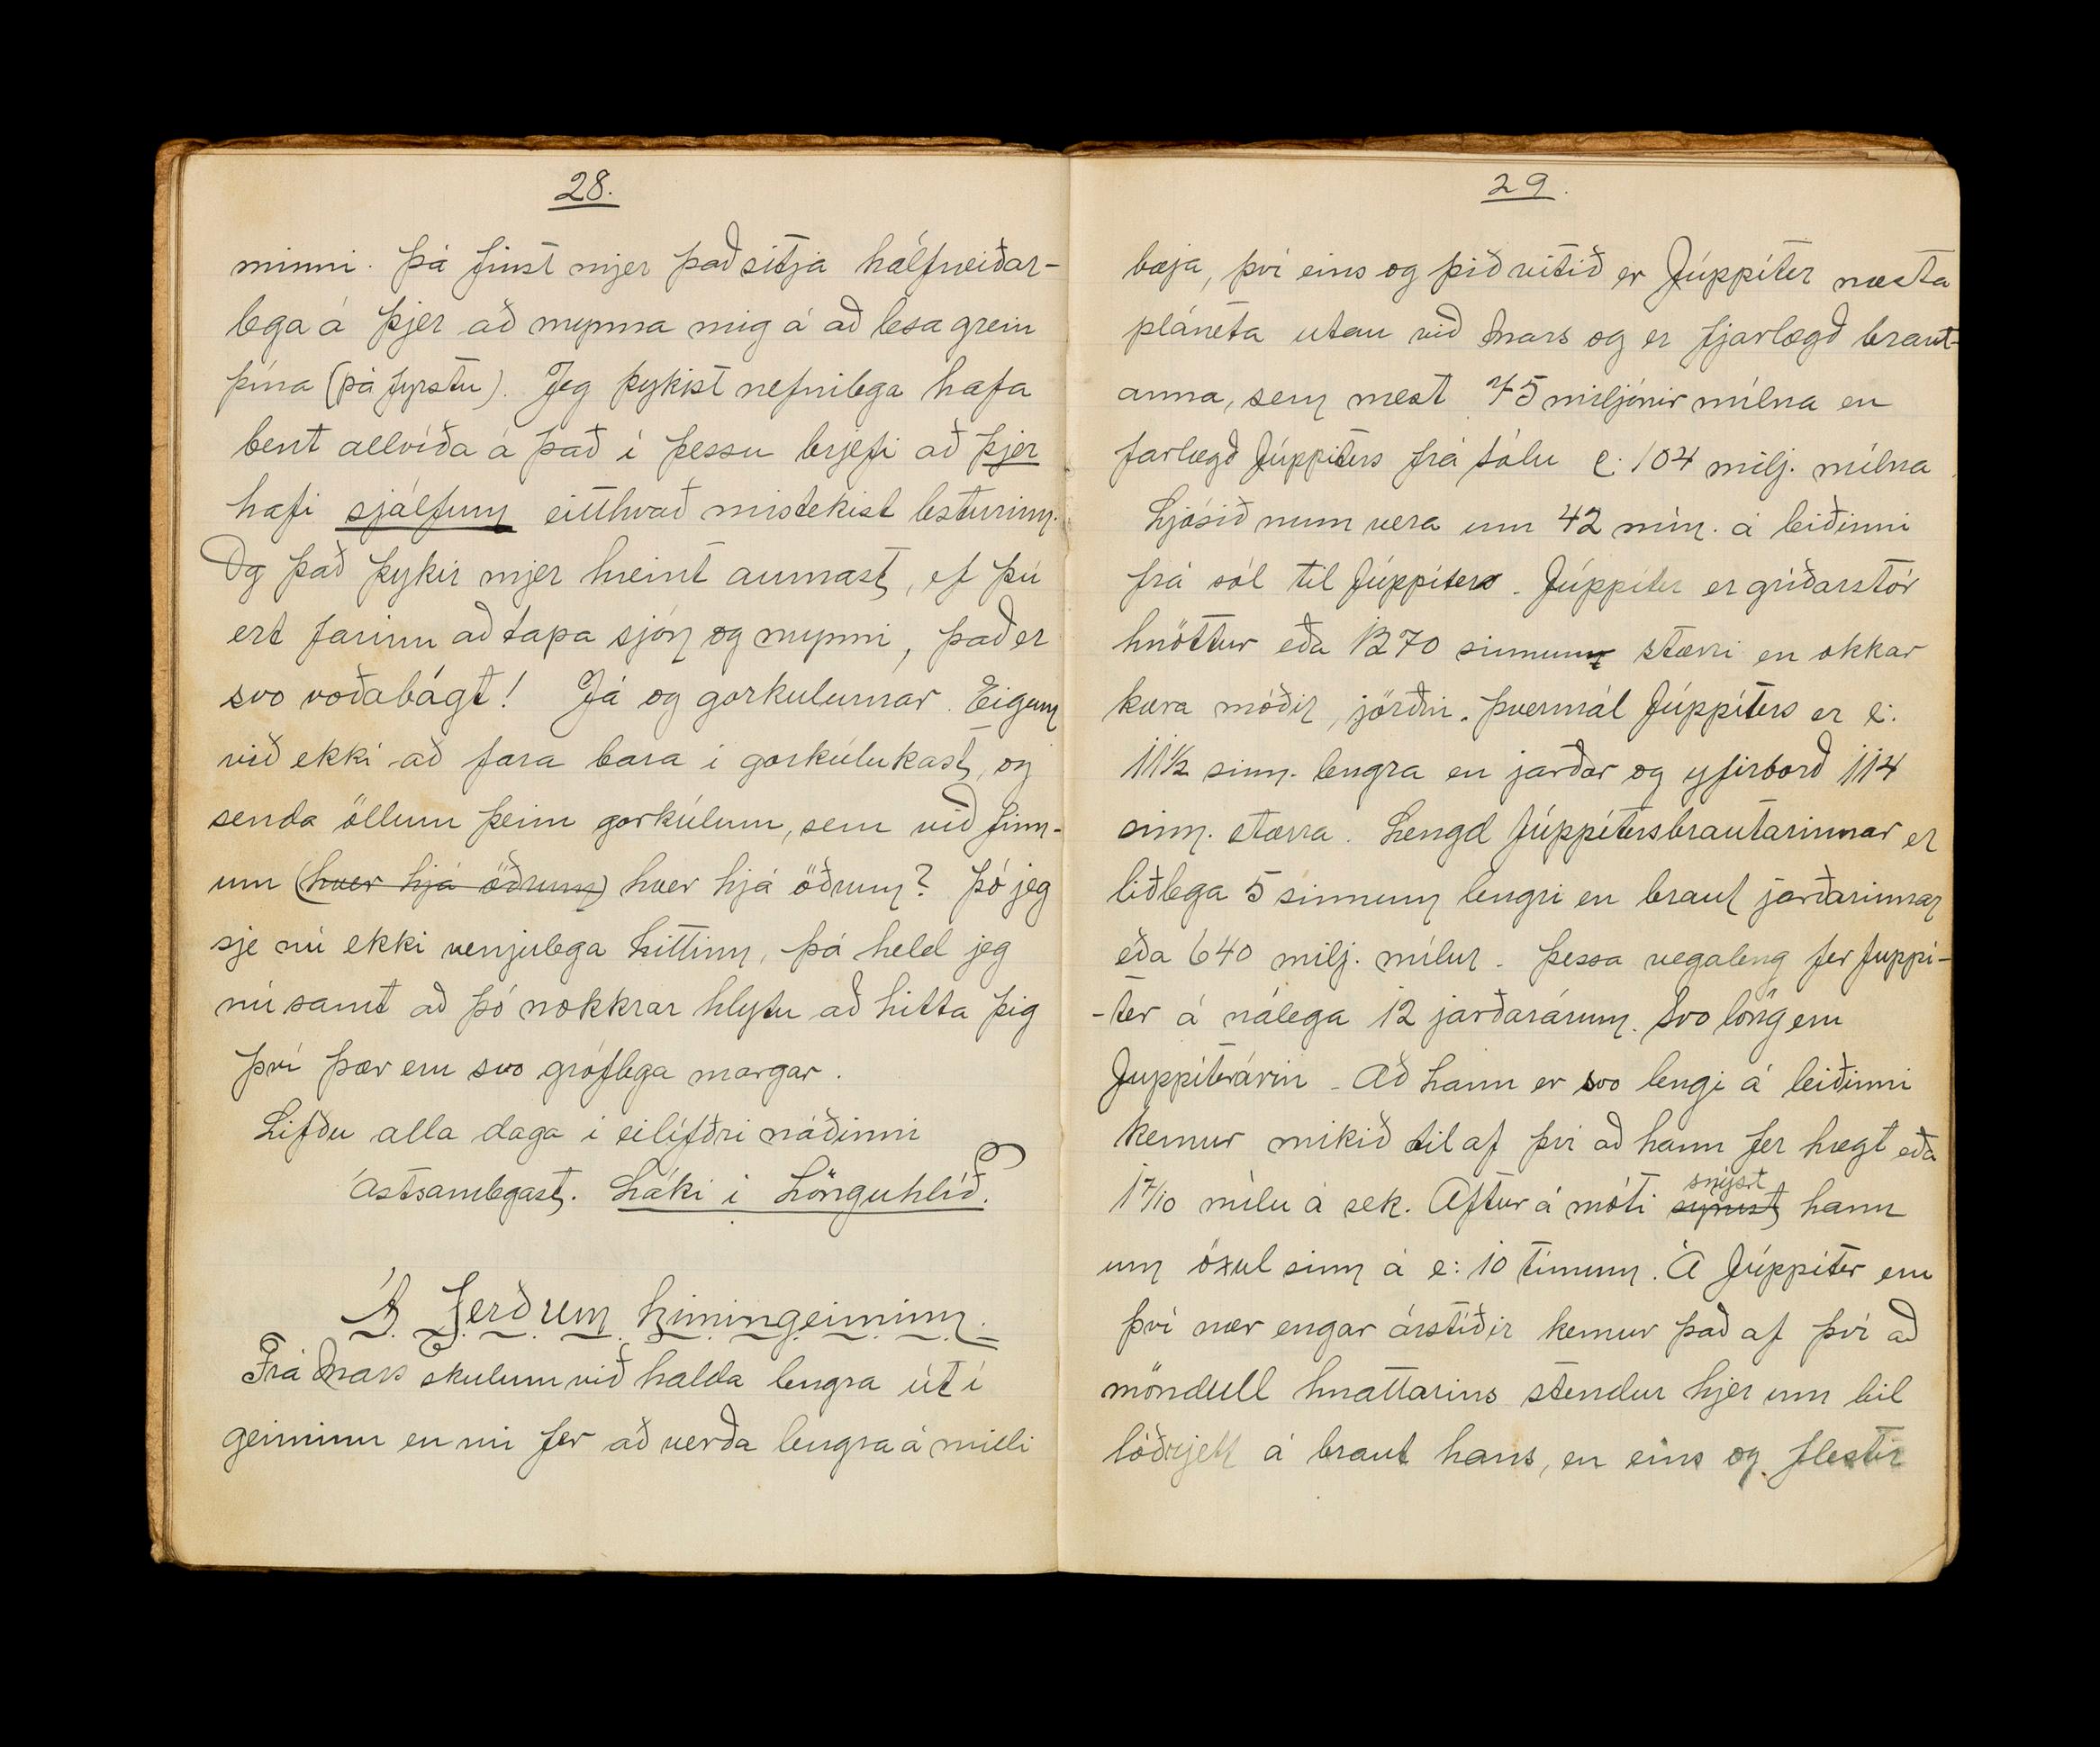 28.
minni. Þá finst mjer það sitja hálfneiðar-
lega á þjer að mynna mig á að lesa grein
þína (þá fyrstu). Jeg þykist nefnilega hafa
bent allvíða á það í þessu brjefi að þjer
hafi sjálfum eitthvað mistekist lesturinn.
Og það þykir mjer hreint aumast, ef þú
ert farinn að tapa sjón og mynni, það er
svo voðabágt! Já og gorkulurnar. Eigum
við ekki að fara bara í gorkúlukast, og
senda öllum þeim gorkúlum, sem við finn-
um (hver hjá öðrum) hver hjá öðrum? Þó jeg
sje nú ekki venjulega hittinn, þá held jeg
nú samt að þó nokkrar hlytu að hitta þig
því þær eru svo gróflega margar.
Lifðu alla daga í eilífðri náðinni
ástsamlegast. Láki í Lönguhlíð.
Á ferð um himingeiminn.
Frá Mars skulum við halda lengra út í
geiminn en nú fer að verða lengra á milli
29.
bæja, því eins og þið vitið er Júppíter næsta
pláneta utan við Mars og er fjarlægð braut-
anna, sem mest 75 miljónir mílna en
farlægð Júppíters frá sólu c: 104 milj. mílna.
Ljósið mun vera um 42 mín. á leiðinni
frá sól til Júppíters. Júppíter er gríðarstór
hnöttur eða 1270 sinnum stærri en okkar
kæra móðir, jörðin. Þvermál Júppíters er c:
11½ sinn. lengra en jarðar og yfirborð 114
sinn. stærra. Lengd Júppítersbrautarinnar er
liðlega 5 sinnum lengri en braut jarðarinnar
eða 640 milj. mílur. Þessa vegaleng fer Juppí-
-ter á nálega 12 jarðarárum. Svo löng eru
Juppíterárin. Að hann er svo lengi á leiðinni
kemur mikið til af því að hann fer hægt eða
1 7/10 mílu á sek. Aftur á móti synist snýst hann
um öxul sinn á c: 10 tímum. Á Júppíter eru
því nær engar árstíðir kemur það af því að
möndull hnattarins stendur hjer um bil
lóðrjett á braut hans, en eins og flestir